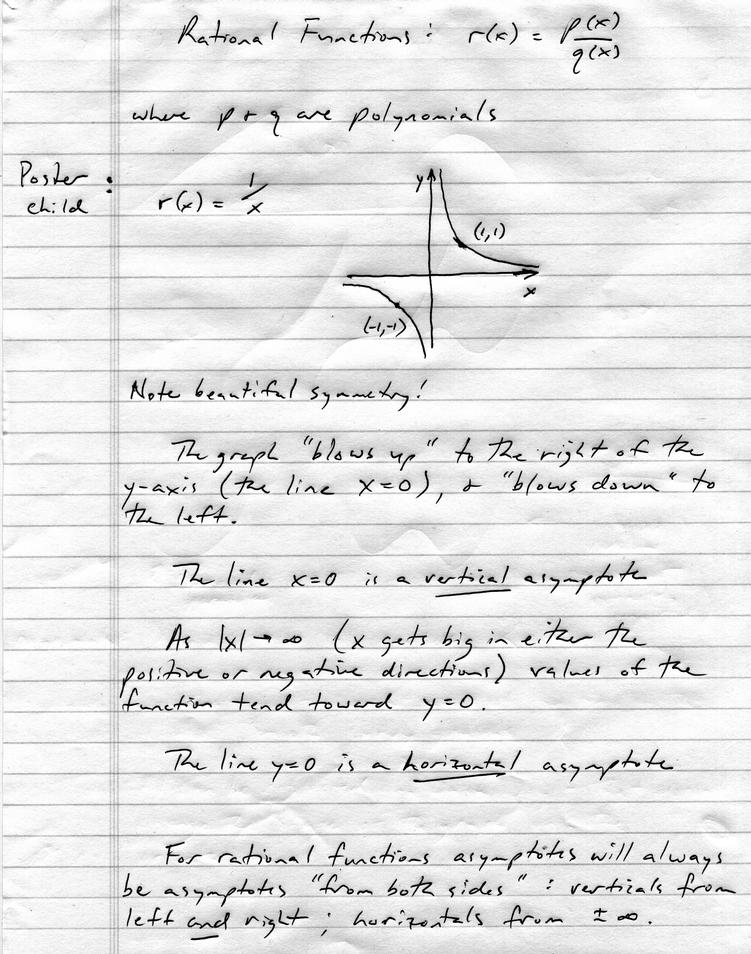 Rational Functions: r(x) = p(x)/q(x)
where p + q are polynomials
Poster child : r(x) = 1/x
y
(1,1)
x
(-1,-1)
Note beautiful symmetry!
The graph "blows up" to the right of the
y-axis (the line x=0), + "blows down" to
the left.
The line x=0 is a vertical asymptote
As |x| → ∞ (x gets big in either the
positive or negative directions) values of the
function tend toward y=0.
The line y=0 is a horizontal asymptote
For rational functions asymptotes will always
be asymptotes "from both sides" : verticals from
left and right ; horizontals from ± ∞.